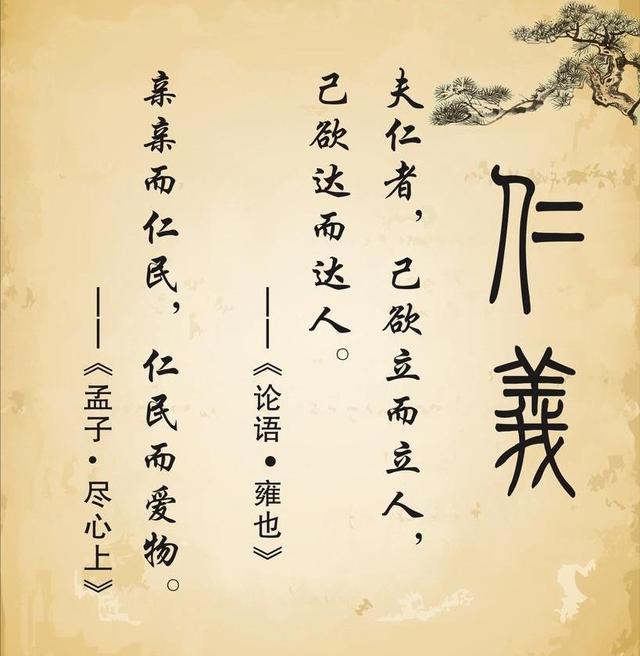 仁義
夫仁者，己欲立而立人，
己欲达而达人。
——《论语·雍也》
亲亲而仁民，仁民而爱物。
——《孟子·尽心上》